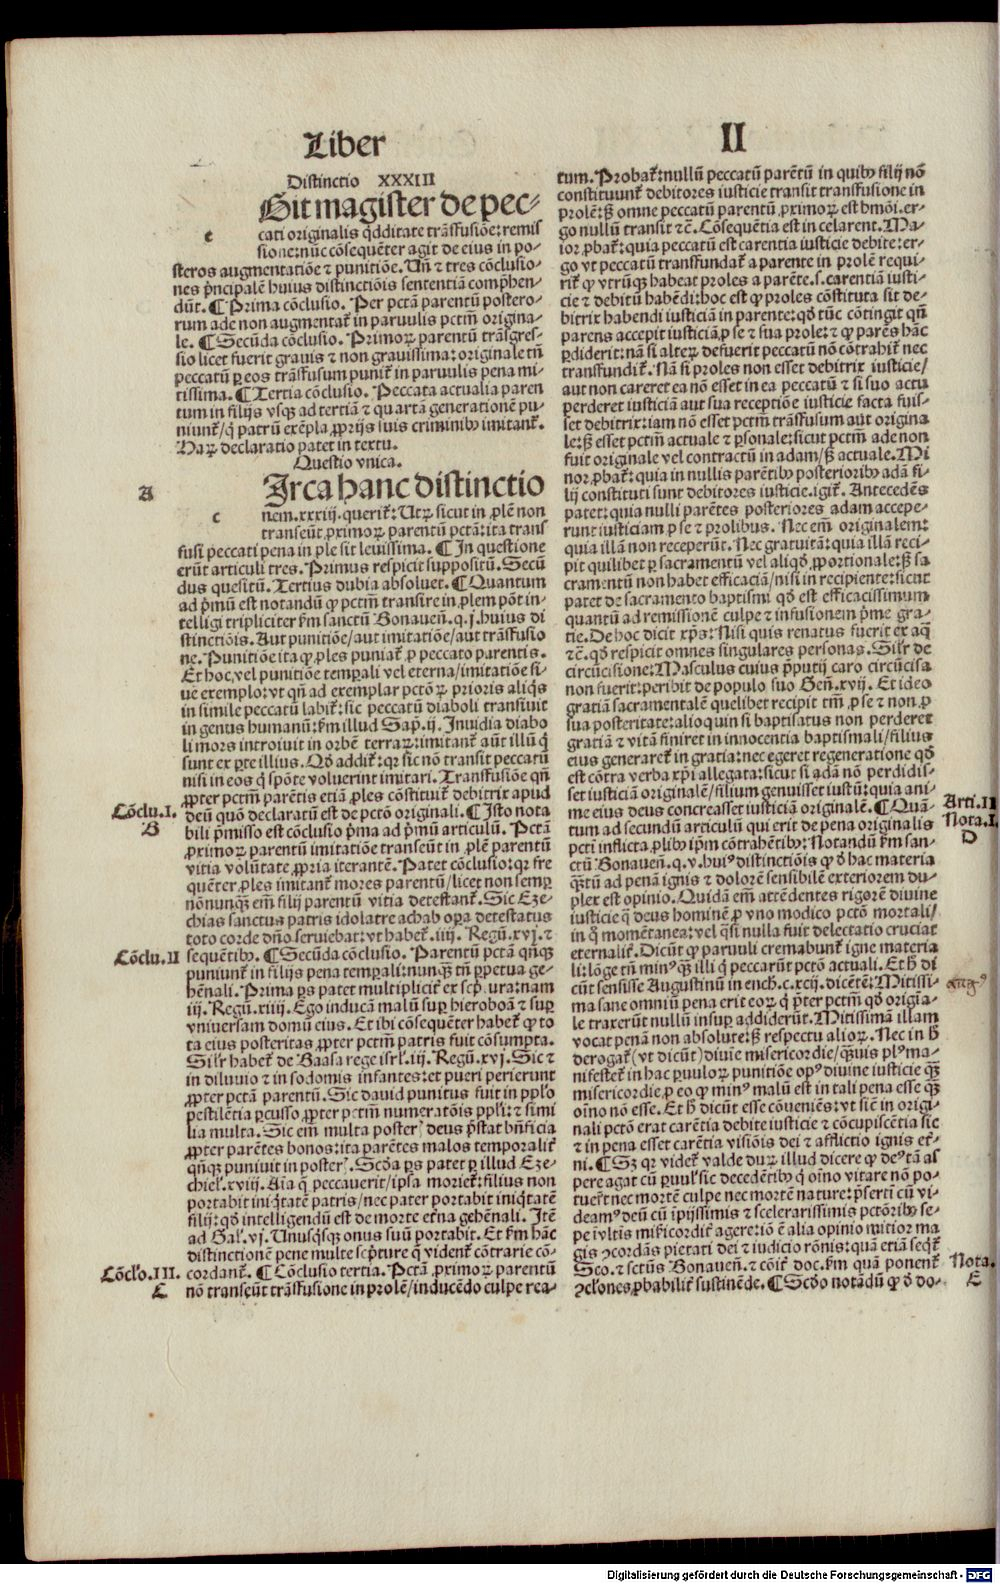 Liber
II
Distinctio XXXIII
Git magister de pec-
e cati originalis q̄dditate trāsfusiōe: remis
sione: nūc cōsequēter agit de eius in po-
steros augmentatiōe ⁊ punitiōe. Uñ ⁊ tres cōclusio-
nes p̄ncipalē huius distinctiōis sententiā comp̄hen-
dūt. ¶ Prima cōclusio. Per pctā parentū postero-
rum ade non augmentat̄ in paruulis pctm̄ origina-
le. ¶ Secūda cōclusio. Primoꝝ parentū trāsgres-
sio licet fuerit grauis ⁊ non grauissima: originale tñ
peccatū ꝑ eos trāsfusum punit̄ in paruulis pena mi-
tissima. ¶ Tertia cōclusio. Peccata actualia paren
tum in filijs vsqꝫ ad tertiā ⁊ quartā generationē pu-
niunt̄/q̇ patrū exēpla ꝓprijs suis criminibꝰ imitant̄.
Haꝝ declaratio patet in textu.
Questio vnica.
A
Irca hanc distinctio
c nem.xxxiij.querit̄: Utꝝ sicut in ꝓlē non
transeūt ꝓximoꝝ parentū pctā: ita trans
fusi peccati pena in ꝓle sit leuissima. ¶ In questione
erūt articuli tres. Primus respicit suppositū. Secū
dus quesitū. Tertius dubia absoluet. ¶ Quantum
ad p̄mū est notandū ꝙ pctm̄ transire in ꝓlem pōt in-
telligi tripliciter ẜm sanctū Bonauen̄.q.j.huius di
stinctiōis. Aut punitiōe/aut imitatiōe/aut trāsfusio
ne. Punitiōe ita ꝙ ꝓles puniat̄ ꝓ peccato parentis.
Et hoc, vel punitiōe temꝑali vel eterna/imitatiōe si-
ue exemplo: vt qñ ad exemplar pctōꝝ prioris aliq̇s
in simile peccatū labit̄: sic peccatū diaboli transiuit
in genus humanū: ẜm illud Sap̄.ij. Inuidia diabo
li mors introiuit in orbē terraꝝ: imitant̄ aūt illū q̇
sunt ex ꝑte illius. Qd̄ addit̄: qꝛ sic nō transit peccatū
nisi in eos q̇ spōte voluerint imitari. Transfusiōe qñ
ꝓpter pctm̄ parētis etiā ꝓles cōstituit̄ debitrix apud
Cōclu.I.
B
deū quō declaratū est de pctō originali. ¶ Isto nota
bili p̄misso est cōclusio p̄ma ad p̄mū articulū. Pctā
ꝓximoꝝ parentū imitatiōe transeūt in ꝓlē parentū
vitia volūtate ꝓpria iterantē. Patet cōclusio: qꝛ fre
quēter ꝓles imitant̄ mores parentū/licet non semꝑ
nō nunqꝫ em̄ filij parentū vitia detestant̄. Sic Eze-
chias sanctus patris idolatre achab oꝑa detestatus
toto corde dn̄o seruiebat: vt habet̄.iiij. Regū.xvj.⁊
Cōclu.II
sequētibꝰ. ¶ Secūda cōclusio. Parentū pctā qn̄qꝫ
puniunt̄ in filijs pena temꝑali: nunqꝫ tñ ꝑpetua ge-
hēnali. Prima ꝑs patet multiplicit̄ ex scp̄ura: nam
iij. Regū.xiiij. Ego inducā malū suꝑ hieroboā ⁊ suꝑ
vniuersam domū eius. Et ibi cōsequēter habet̄ ꝙ to
ta eius posteritas ꝓpter pctm̄ patris fuit cōsumpta.
Silr̄ habet̄ de Baasa rege isrl̄.iij. Regū.xvj. Sic ⁊
in diluuio ⁊ in sodomis infantes: et pueri perierunt
ꝓpter pctā parentū. Sic dauid punitus fuit in pplo
pestilētia ꝑcusso ꝓpter pctm̄ numeratōis ppli: ⁊ simi
lia multa. Sic em̄ multa poster̄ deus p̄stat bn̄ficia
ꝓpter parētes bonos: ita parētes malos temporalit̄
qn̄qꝫ puniuit in poster̄. Scd̄a ꝑs patet ꝑ illud Eze-
chiel̄.xviij. Aīa q̄ peccauerit/ipsa moriet̄: filius non
portabit iniq̇tatē patris/nec pater portabit iniq̇tatē
filij: qd̄ intelligendū est de morte et̄na gehēnali. Itē
ad Gal̄.vj. Unusq̇sqꝫ onus suū portabit. Et ẜm hāc
distinctionē pene multe scp̄ture q̄ vident̄ cōtrarie cō-
Cōclo.III.
E
cordant̄. ¶ Cōclusio tertia. Pctā ꝓximoꝝ parentū
nō transeūt trāsfusione in prolē/inducēdo culpe rea-
tum. Probat̄: nullū peccatū parētū in quibꝰ filij nō
constituunt̄ debitores iusticie transit transfusione in
prolē: sꝫ omne peccatū parentū ꝓximoꝝ est hmōi. er-
go nullū transit ⁊c̄. Cōsequētia est in celarent. Ma-
ior ꝓbat̄: quia peccatū est carentia iusticie debite: er-
go vt peccatū transfundat̄ a parente in prolē requi-
rit̄ ꝙ vtrūqꝫ habeat proles a parēte.s.carentiā iusti-
cie ⁊ debitū habēdi: hoc est ꝙ proles cōstituta sit de-
bitrix habendi iusticiā in parente: qd̄ tūc cōtingit qn̄
parens accepit iusticiā ꝓ se ⁊ sua prole: ⁊ ꝙ parēs hāc
ꝑdiderit: nā si alteꝝ defuerit peccatū nō cōtrahit̄ nec
transfundit̄. Nā si proles non esset debitrix iusticie/
aut non careret ea nō esset in ea peccatū ⁊ si suo actu
perderet iusticiā aut sua receptiōe iusticie facta fuis-
set debitrix: iam nō esset pctm̄ trāsfusum aut origina
le: sꝫ esset pctm̄ actuale ⁊ ꝑsonale: sicut pctm̄ ade non
fuit originale vel contractū in adam/sꝫ actuale. Mi
nor ꝓbat̄: quia in nullis parētibꝰ posterioribꝰ adā fi-
lij constituti sunt debitores iusticie. igit̄. Antecedēs
patet: quia nulli parētes posteriores adam accepe-
runt iusticiam ꝓ se ⁊ prolibus. Nec em̄ originalem:
quia illā non receperūt. Nec gratuitā: quia illā reci-
pit quilibet ꝑ sacramentū vel aliqd̄ ꝓportionale: sꝫ sa
cramentū non habet efficaciā/nisi in recipiente: sicut
patet de sacramento baptismi qd̄ est efficacissimum
quantū ad remissionē culpe ⁊ infusionem p̄me gra-
tie. De hoc dicit xp̄s: Nisi quis renatus fuerit ex aq̄
⁊c̄. qd̄ respicit omnes singulares personas. Silr̄ de
circūcisione: Masculus cuius p̄putij caro circūcisa
non fuerit: peribit de populo suo Gen̄.xvij. Et ideo
gratiā sacramentalē quelibet recipit tm̄ ꝓ se ⁊ non ꝓ
sua posteritate: alioquin si baptisatus non perderet
gratiā ⁊ vitā finiret in innocentia baptismali/filius
eius generaret̄ in gratia: nec egeret regeneratione qd̄
est cōtra verba xp̄i allegata: sicut si adā nō perdidis-
set iusticiā originalē/filium genuisset iustū: quia ani-
Arti.II
Nota.I.
D
me eius deus concreasset iusticiā originalē. ¶ Quā-
tum ad secundū articulū qui erit de pena originalis
pcti inflicta ꝓlibꝰ ip̄m cōtrahētibꝰ: Notandū ẜm san-
ctū Bonauen̄.q.v.huiꝰ distinctiōis ꝙ d̄ hac materia
qꝫtū ad penā ignis ⁊ dolorē sensibilē exteriorem du-
plex est opinio. Quidā em̄ attēdentes rigorē diuine
iusticie q̄ deus hominē ꝓ vno modico pctō mortali/
in q̇ momētanea: vel q̄si nulla fuit delectatio cruciat
eternalit̄. Dicūt ꝙ paruuli cremabunt̄ igne materia
li: lōge tñ minꝰ qꝫ illi q̇ peccarūt pctō actuali. Et h̄ di
cūt sensisse Augustinū in ench.c.xcij. dicētē: Mitissi-
ma sane omniū pena erit eoꝝ q̇ p̄ter pctm̄ qd̄ origīa-
le traxerūt nullū insuꝑ addiderūt. Mitissimā illam
vocat penā non absolute: sꝫ respectu alioꝝ. Nec in h̄
derogat̄ (vt dicūt) diuīe misericordie/qꝫuis plꝰ ma-
nifestet̄ in hac ꝑuuloꝝ punitiōe opꝰ diuine iusticie qꝫ
misericordie ꝓ eo ꝙ minꝰ malū est in tali pena esse qꝫ
oīno nō esse. Et h̄ dicūt esse cōueniēs: vt sic̄ in origi-
nali pctō erat carētia debite iusticie ⁊ cōcupiscētia sic
⁊ in pena esset carētia visiōis dei ⁊ afflictio ignis et̄-
ni. ¶ Sꝫ qꝛ videt̄ valde duꝝ illud dicere ꝙ deꝰ tā as
pere agat cū ꝑuul̓ sic decedētibꝰ q̇ oīno vitare nō po-
tuer̄t nec mortē culpe nec mortē nature: p̄serti cū vi-
deamꝰ deū cū īpijssimis ⁊ scelerarissimis pctōribꝰ se-
pe īvltis mīẜicordit̄ agere: iō ē alia opinio mitior ma
gis ꝯcordās pietati dei ⁊ iudicio rōnis: quā etiā seqt̄
Nota.
E
Sco. ⁊ sctūs Bonauen̄. ⁊ cōit̄ doc. ẜm quā ponent̄
ꝯclones ꝓbabilit̄ sustinēde. ¶ Scd̄o notādū ꝙ d̄ do-
Digitalisierung gefördert durch die Deutsche Forschungsgemeinschaft - DFG